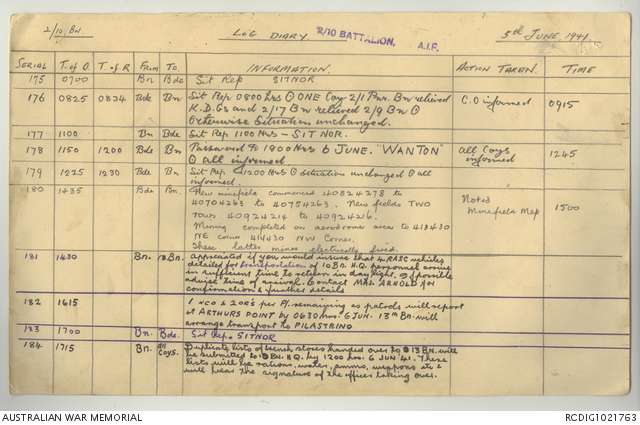 2/10 Bn LOG DIARY 2/10 BATTALION, A.I.F. 5th JUNE 1941.
SERIAL T. of O. T. of R. From To INFORMATION. ACTION TAKEN. TIME
175 0700 Bn Bde Sit Rep SITNOR
176 0825 0834 Bde Bn Sit Rep 0800 hrs ⊙ ONE Coy 2/1 Pnr. Bn relieved C.O informed 0915
K.D.Gs and 2/17 Bn relieved 2/9 Bn ⊙
Otherwise situation unchanged.
177 1100 Bn Bde Sit Rep 1100 Hrs - SITNOR.
178 1150 1200 Bde Bn Password to 1800 Hrs 6 JUNE. "WANTON" All Coys 1245
⊙ all informed informed
179 1225 1230 Bde Bn Sit Rep 1200 Hrs ⊙ situation unchanged ⊙ all
informed.
180 1435 Bde Bn. New minefield commenced 40824278 to Noted 1500
40704263 to 40754263. New fields TWO Minefield Map
Tows 40924214 to 40924426.
Mining completed on aerodrome area to 413430
NE corner 414430 NW Corner.
These latter mines electrically fired.
181 1430 Bn. 13 Bn. appreciated if you would insure that 4 RASC vehicles
detailed for transportation of 10 Bn. H.Q. personnel arrive
in sufficient time to return in daylight. If possible
advise time of arrival. Contact MAJ. ARNOLD for
confirmation & further details
182 1615 1 NCO & 2 OR's per Pl. remaining as patrols will report
at ARTHURS POINT by 0630 hrs. 6 JUN. 13th Bn. will
arrange transport to PILASTRINO
183 1700 Bn. Bde. Sit Rep. SITNOR
184 1715 Bn. All Coys. Duplicate lists of trench stores handed over to 13 BN. will
be submitted to Bn. H.Q. by 1200 hrs. 6 JUN 41. These
lists will be rations, water, ammo, weapons etc &
will bear the signature of the officer taking over.
AUSTRALIAN WAR MEMORIAL RCDIG1021763